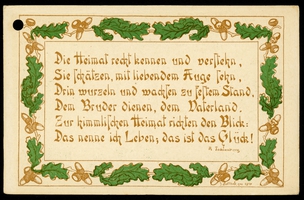 Die Heimat recht kennen und verstehn,
Sie schätzen, mit liebendem Auge sehn,
Drin wurzeln und wachsen zu festem Stand,
Dem Bruder dienen, dem Vaterland.
Zur himmlischen Heimat richten den Blick:
Das nenne ich Leben; das ist das Glück!